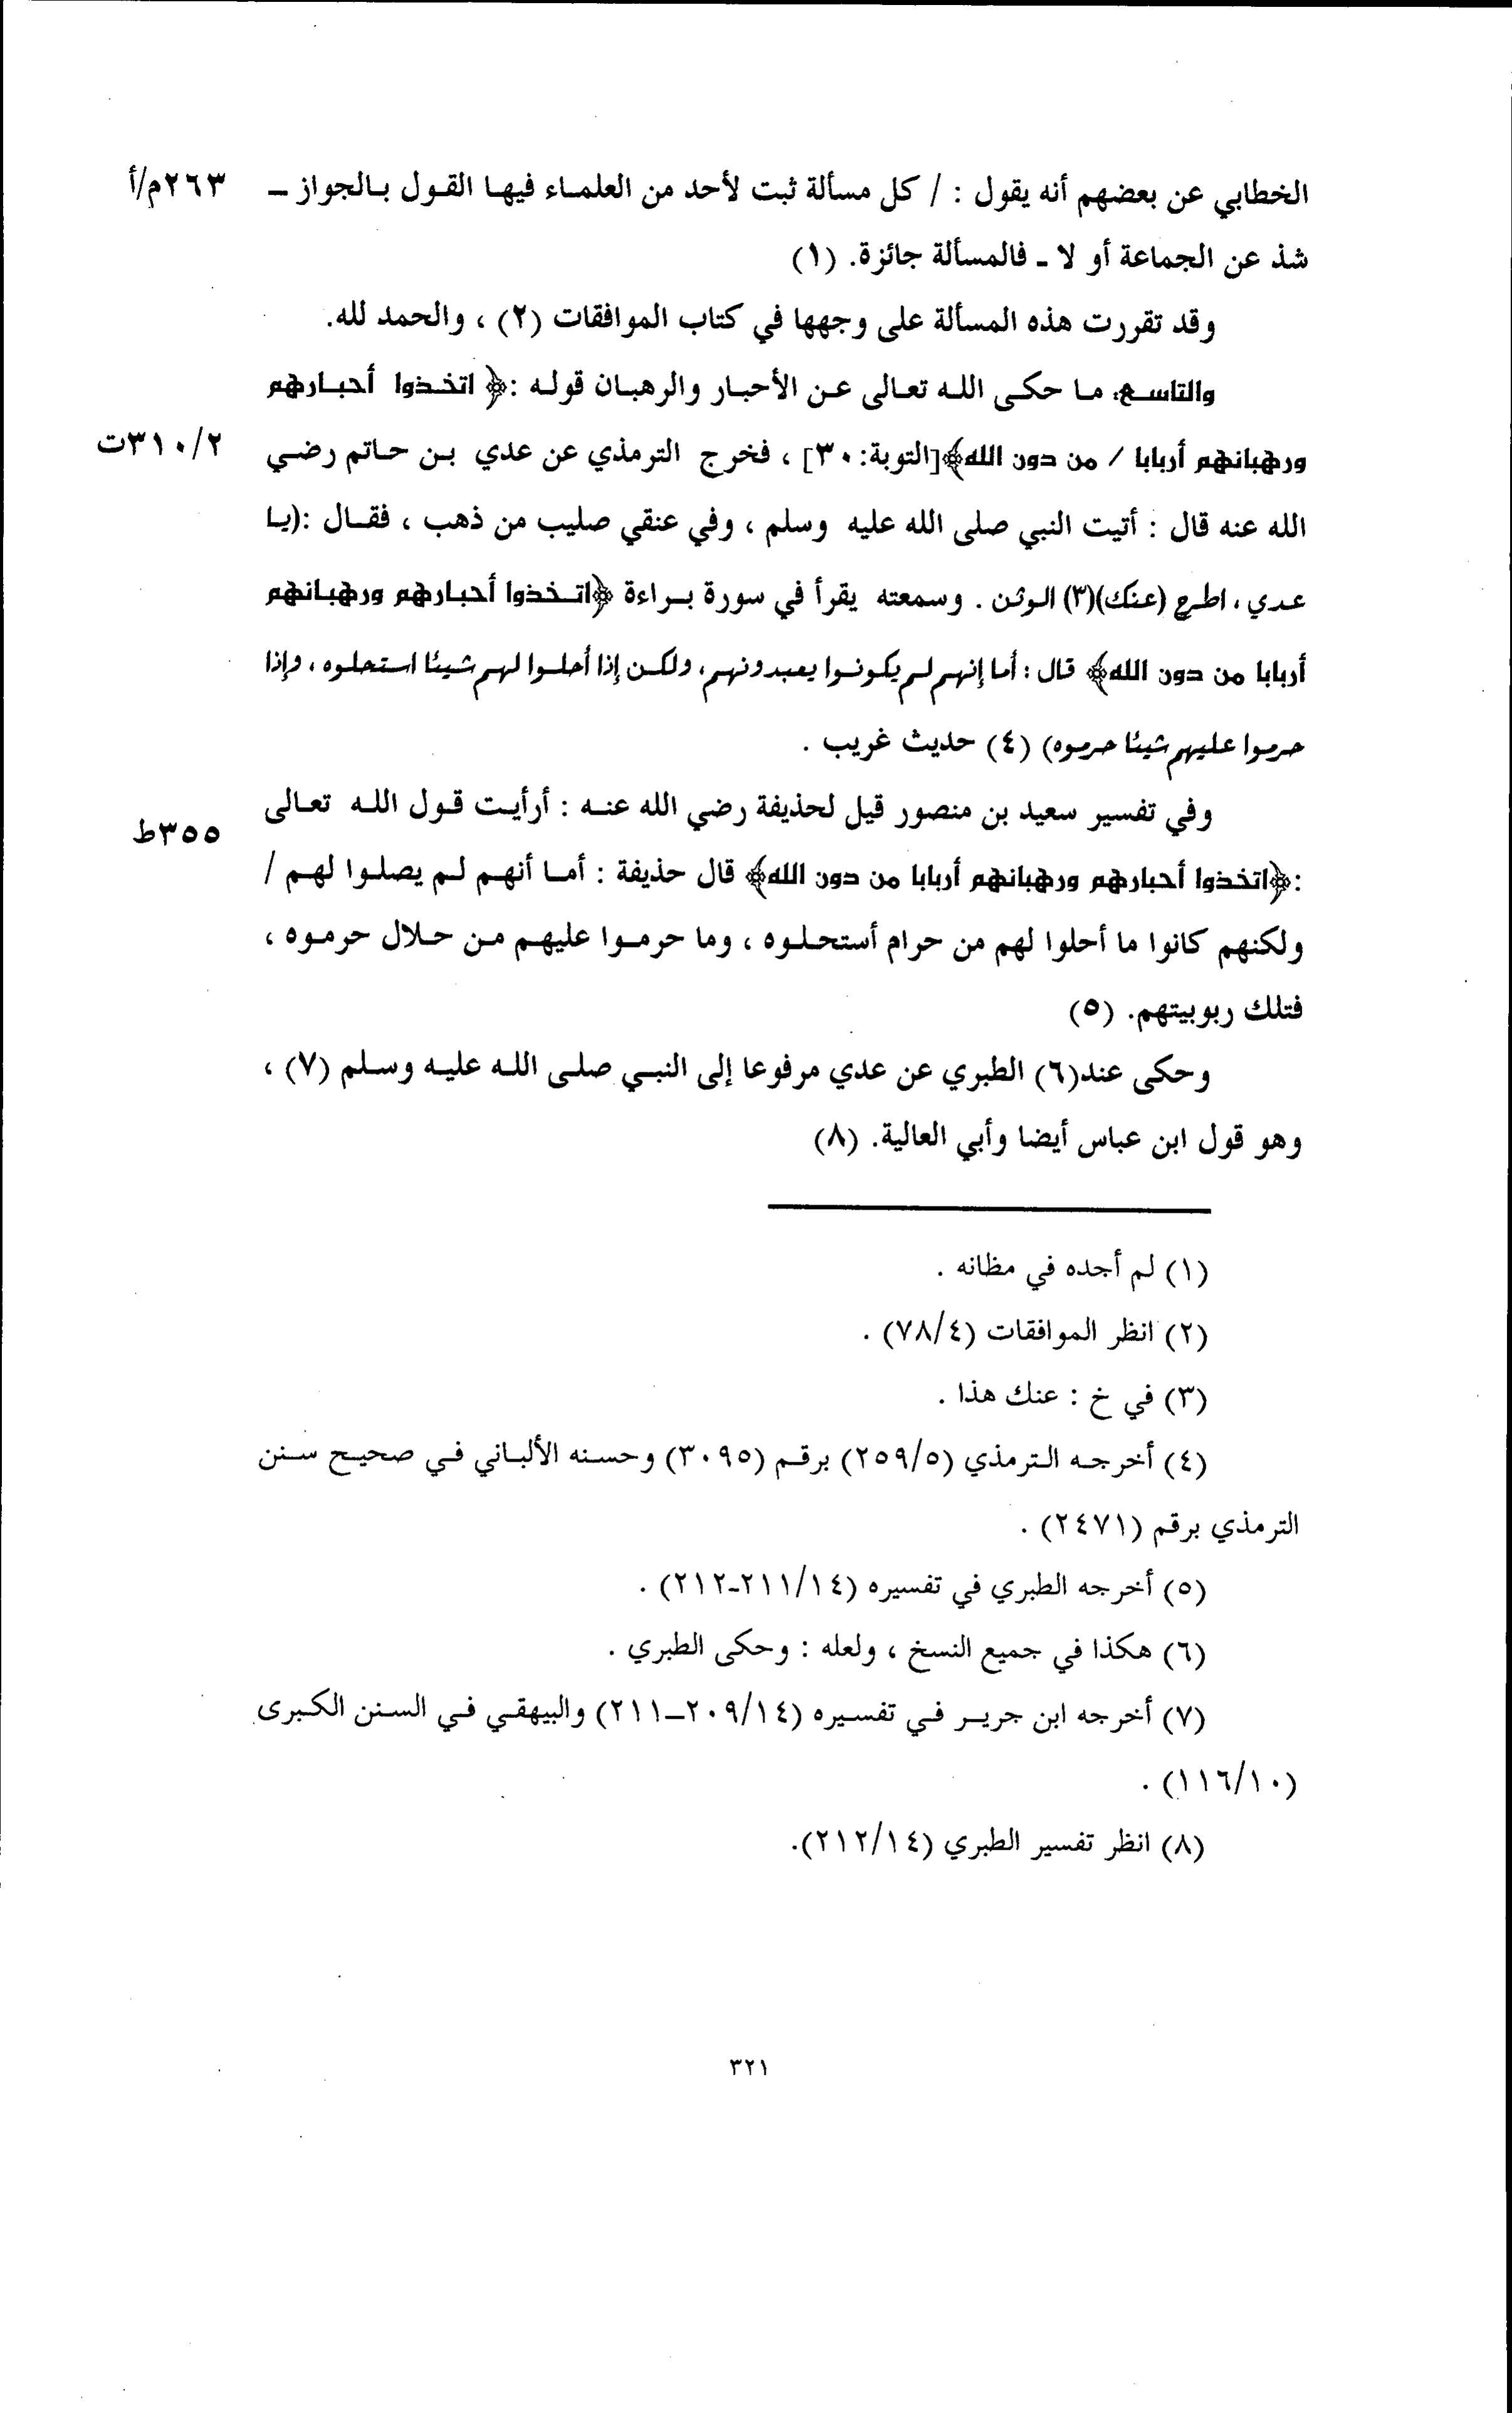 الخطابي عن بعضهم أنه يقول : / كل مسألة ثبت لأحد من العلماء فيها القول بالجواز ـ ٢٦٣م/أ
شذ عن الجماعة أو لا ـ فالمسألة جائزة. (١)
وقد تقررت هذه المسألة على وجهها في كتاب الموافقات (٢) ، والحمد لله.
والتاسع: ما حكى الله تعالى عن الأحبار والرهبان قوله :﴿ اتخذوا أحبارهم
ورهبانهم أربابا / من دون الله﴾[التوبة: ٣٠] ، فخرج الترمذي عن عدي بن حاتم رضي ٣١٠/٢ت
الله عنه قال : أتيت النبي صلى الله عليه وسلم ، وفي عنقي صليب من ذهب ، فقال :(يا
عدي، اطرح (عنك)(٣) الوثن . وسمعته يقرأ في سورة براءة ﴿اتخذوا أحبارهم ورهبانهم
أربابا من دون الله﴾ قال : أما إنهم لم يكونوا يعبدونهم، ولكن إذا أحلوا لهم شيئا استحلوه، وإذا
حرموا عليهم شيئا حرموه) (٤) حديث غريب .
وفي تفسير سعيد بن منصور قيل لحذيفة رضي الله عنه : أرأيت قول الله تعالى
٣٥٥ط
:﴿اتخذوا أحبارهم ورهبانهم أربابا من دون الله﴾ قال حذيفة : أما أنهم لم يصلوا لهم /
ولكنهم كانوا ما أحلوا لهم من حرام أستحلوه ، وما حرموا عليهم من حلال حرموه ،
فتلك ربوبيتهم. (٥)
وحكى عند(٦) الطبري عن عدي مرفوعا إلى النبي صلى الله عليه وسلم (٧) ،
وهو قول ابن عباس أيضا وأبي العالية. (٨)
(١) لم أجده في مظانه .
(٢) انظر الموافقات (٧٨/٤) .
(٣) في خ : عنك هذا .
(٤) أخرجه الترمذي (٢٥٩/٥) برقم (٣٠٩٥) وحسنه الألباني في صحيح سنن
الترمذي برقم (٢٤٧١) .
(٥) أخرجه الطبري في تفسيره (٢١١/١٤-٢١٢) .
(٦) هكذا في جميع النسخ ، ولعله : وحكى الطبري .
(٧) أخرجه ابن جرير في تفسيره (٢٠٩/١٤ـ٢١١) والبيهقي في السنن الكبرى
(١١٦/١٠) .
(٨) انظر تفسير الطبري (٢١٢/١٤).
٣٢١